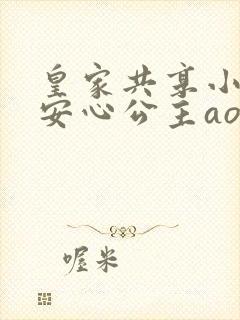 皇家共享小
安心公主ao
喔米